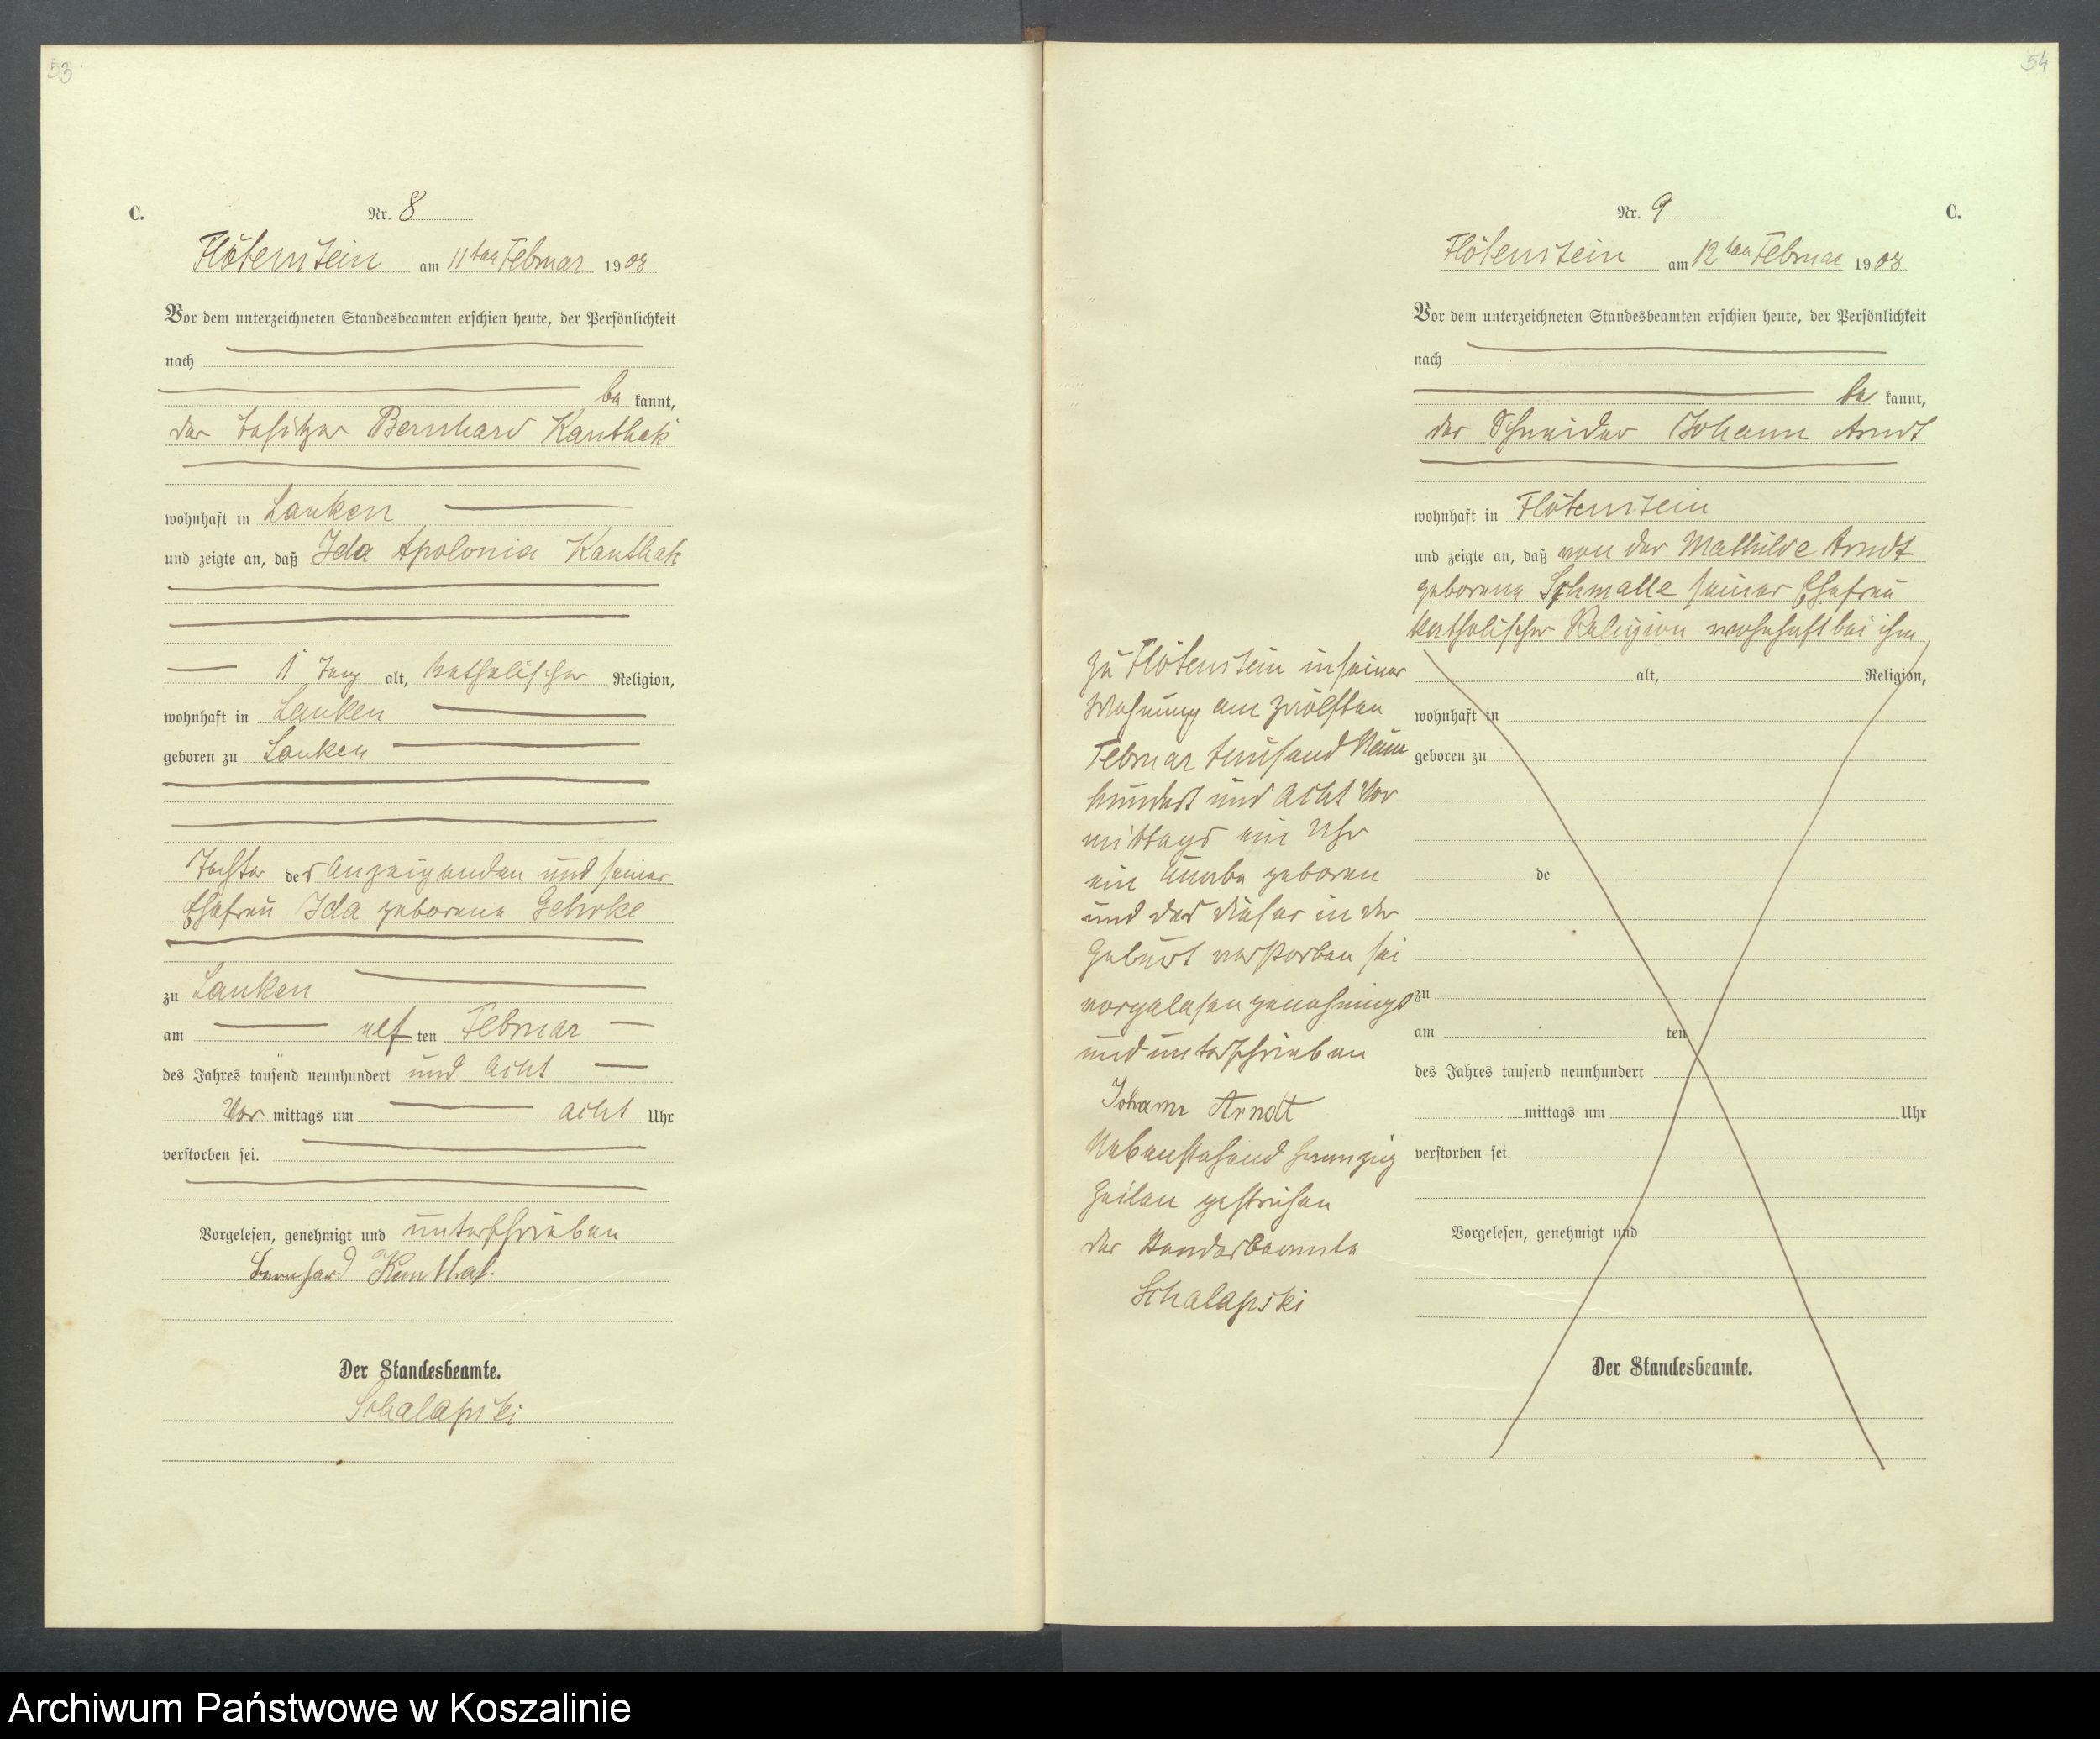 53
C.
Nr. 8
Flötenstein am 11ten Februar 1908
Vor dem unterzeichneten Standesbeamten erschien heute, der Persönlichkeit
nach
be kannt,
der Besitzer Bernhard Kanthak
wohnhaft in Lanken
und zeigte an, daß Ida Apolonia Kanthak
1 Tag alt, katholischer Religion,
wohnhaft in Lanken
geboren zu Lanken
Tochter des Anzeigenden und seiner
Ehefrau Ida geborene Gehrke
zu Lanken
am elf ten Februar
des Jahres tausend neunhundert und acht
Vor mittags um acht Uhr
verstorben sei.
Vorgelesen, genehmigt und unterschrieben
Bernhard Kanthak.
Der Standesbeamte.
Schalapski
54
Nr. 9
C.
Flötenstein am 12ten Februar 1908
Vor dem unterzeichneten Standesbeamten erschien heute, der Persönlichkeit
nach
be kannt,
der Schneider Johann Arndt
wohnhaft in Flötenstein
und zeigte an, daß von der Mathilde Arndt
geborene Schmalle seiner Ehefrau
katholischer Religion wohnhaft bei ihm
zu Flötenstein in seiner
Wohnung am zwölften
Februar tausend Neun
hundert und acht Vor
mittags ein Uhr
ein Knabe geboren
und das dieser in der
Geburt verstorben sei
vorgelesen genehmigt
und unterschrieben
Johann Arndt
Nebenstehend
Zeilen gestrichen
der Standesbeamte
Schalapski
alt, Religion,
wohnhaft in
geboren zu
de
zu
am ten
des Jahres tausend neunhundert
mittags um Uhr
verstorben sei.
Vorgelesen, genehmigt und
Der Standesbeamte.
Archiwum Państwowe w Koszalinie